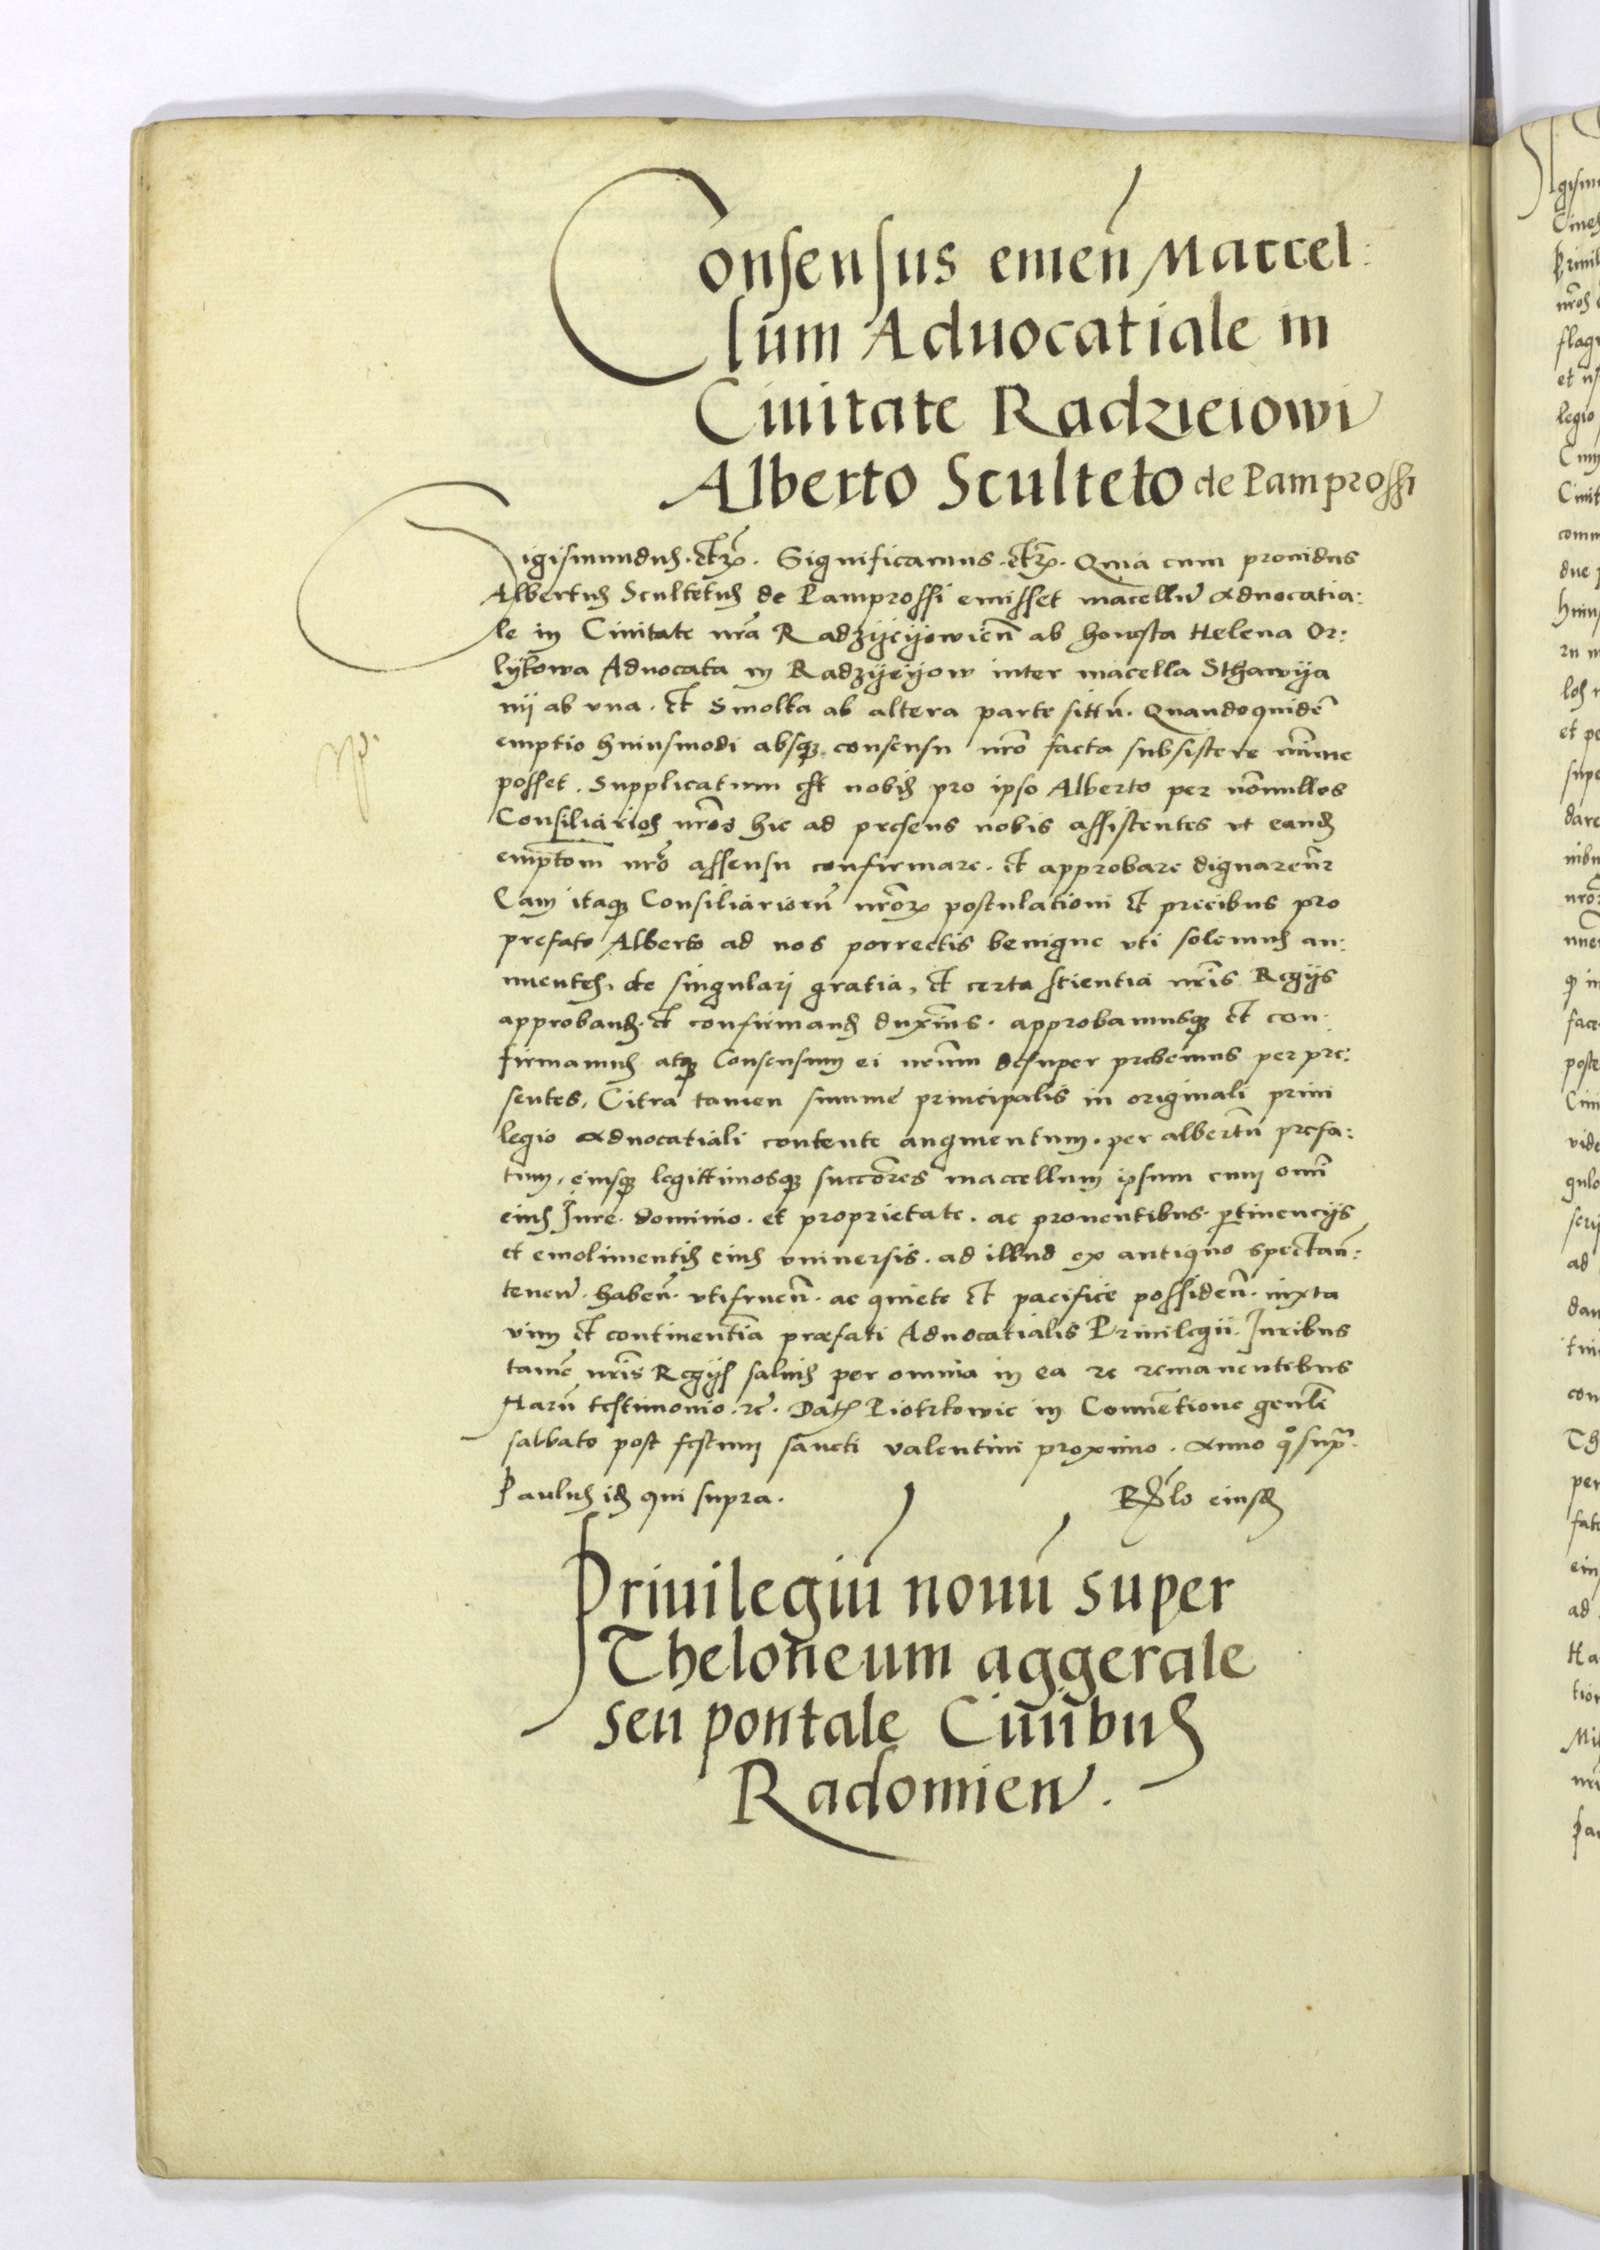 Consensus emen̄ Maccel:
lum Aduocatiale in
Ciuitate Radzieiowi
Alberto Sculteto de Pamprossi
Sigismundus. etc̃. Significamus. etc̃. Quia cum prouidus
Albertus Scultetus de Pamprossi emisset macellũ Aduocatia:
le in Ciuitate nr̃a Radzyeyowien̄ ab honesta Helena Or:
lykowa Aduocata in Radzyeyow inter macella Sthawya
nij ab vna. et Smolka ab altera parte sitũ. Quandoquidẽ
emptio huiusmodi absq3 consensu nr̃o facta subsistere mĩme
posset. Supplicatum est nobis pro ipso Alberto per nõnullos
Consiliarios nr̃os hic ad presens nobis assistentes vt eand
emptom̄ nr̃o assensu confirmare. et approbare dignarem̃r
Cam itaq3 Consiliariorũ nr̃or postulationi et precibus pro
prefato Alberto ad nos porrectis benigne vti solemus an:
nuentes, de singulari gratia, et certa scientia nr̃is Regijs
approband. et confirmand duxim̃s. approbamusq3 et con:
firmamus atq3 Consensum ei nr̃um desuper prebemus per pre:
sentes, Citra tamen summe principalis in originali priui
legio Aduocatiali contente augmentum. per albertũ prefa:
tum, eiusq3 legittimosq3 succõres maccellum ipsum cum omĩ
eius Jure. dominio. et proprietate. ac prouentibus. ptinencijs
et emolimentis eius vniuersis. ad illud ex antiquo spectan̄:
tenen̄. haben̄. vtifruen̄. ac quiete et pacifice possiden̄. iuxta
vim et continentĩa præfati Aduocatialis Priuilegii. Juribus
tamẽ nr̃is Regijs saluis per omnia in ea re remanentibus
Harũ testimonio. rc̃. Dat Piotrkowie in Conuẽtione genl̃i
sabbato post festum sancti valentini proximo. Anno q̊ supr̃
Paulus id qui supra. Rl̃o eiusd
Priuilegiũ nouũ super
Theloneum aggerale
seu pontale Ciuibus
Radomien̄.